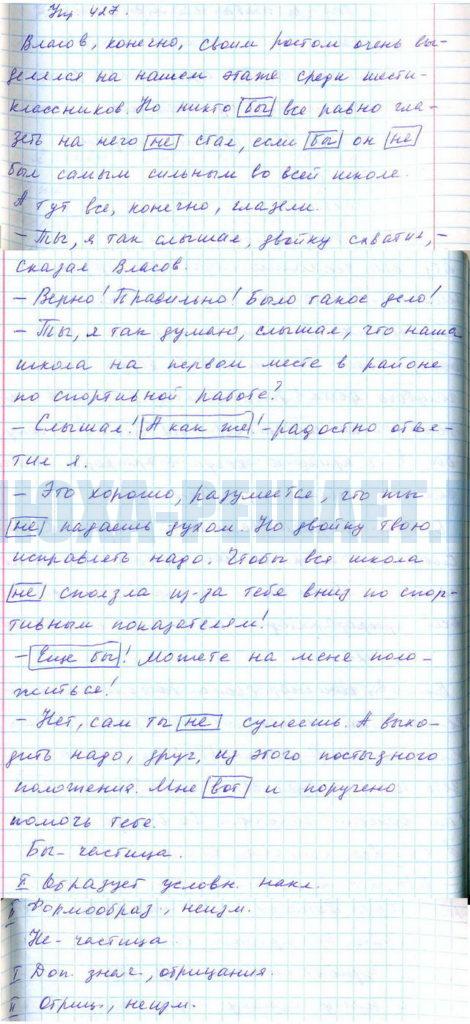 Упр. 427.
Власов, конечно, своим ростом очень вы-
делялся на нашем этаже среди шести-
классников. Но никто бы все равно гла-
зеть на него не стал, если бы он не
был самым сильным во всей школе.
А тут все, конечно, глазели.
– Ты, я так слышал, двойку схватил, –
сказал Власов.
– Верно! Правильно! Было такое дело!
– Ты, я так думаю, слышал, что наша
школа на первом месте в районе
по спортивной работе?
– Слышал! А как же! – радостно отве-
тил я.
– Это хорошо, разумеется, что ты
не падаешь духом. Но двойку твою
исправлять надо. Чтобы вся школа
не сползла из-за тебя вниз по спор-
тивным показателям!
– Еще бы! Можете на меня поло-
житься!
– Нет, сам ты не сумеешь. А выхо-
дить надо, друг, из этого постыдного
положения. Мне вот и поручено
помочь тебе.
Бы – частица.
I Образует условн. накл.
II Формообраз, неизм.
Не – частица.
I Доп. знач., отрицания.
II Отриц., неизм.